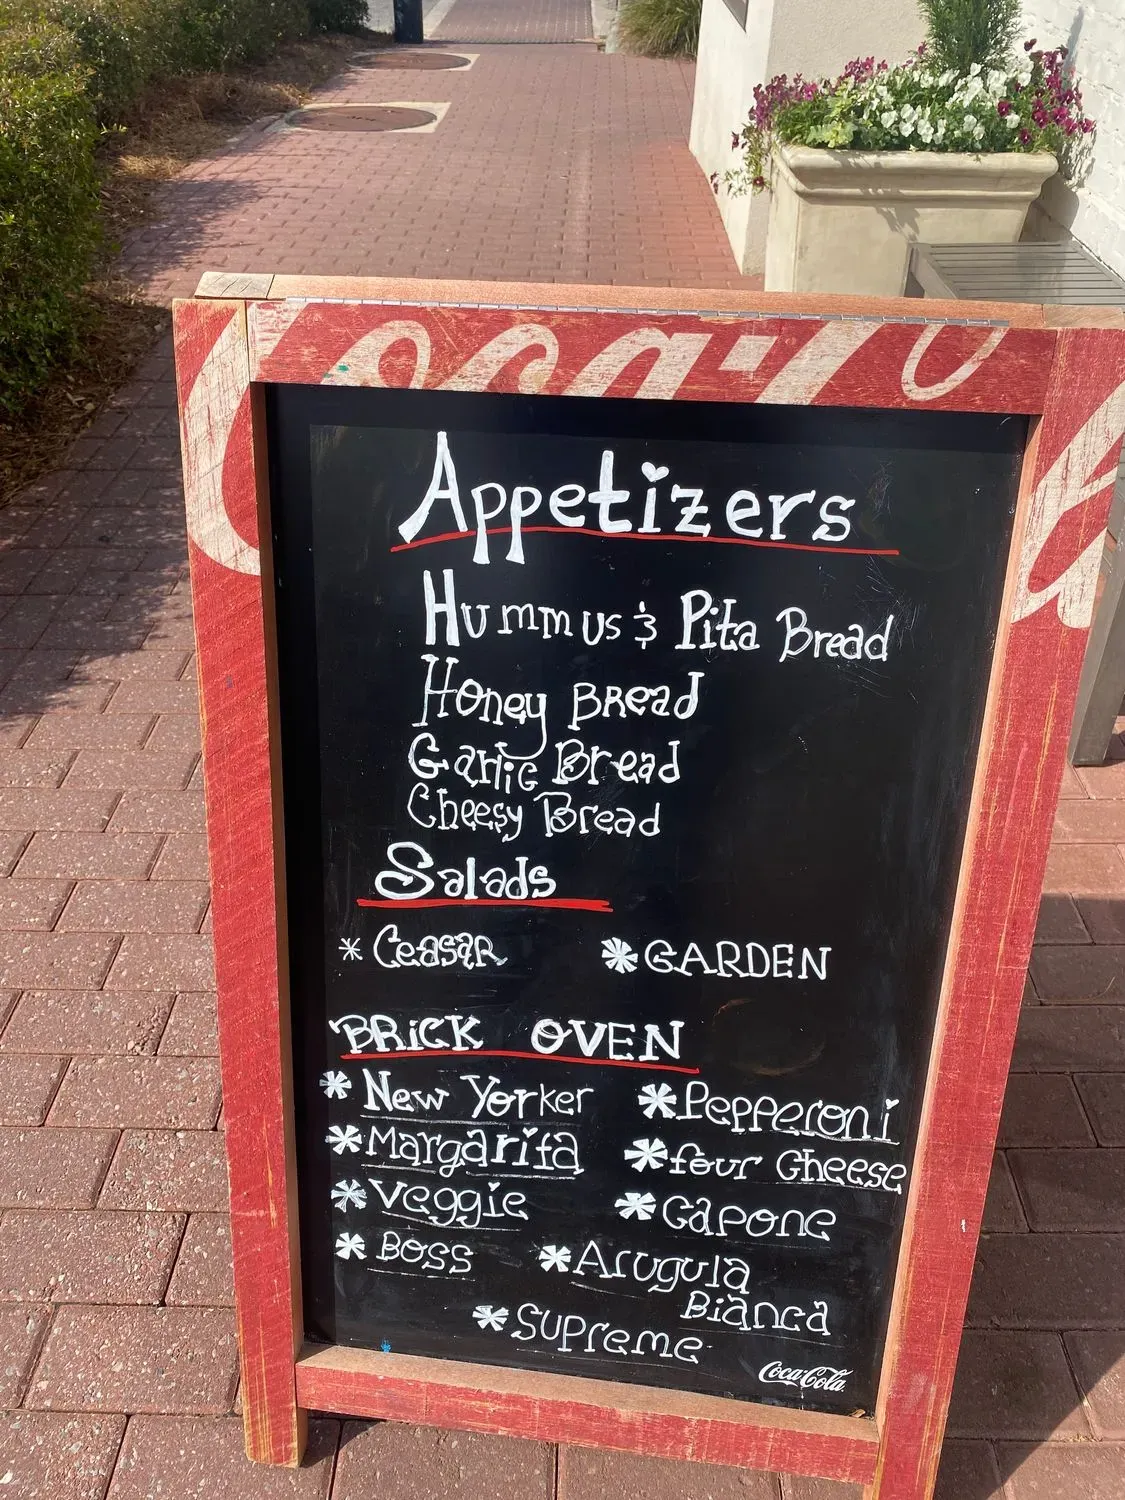 Coca-Co
Appetizers
Hummus & Pita Bread
Honey Bread
Garlic Bread
Cheesy Bread
Salads
* Ceasar * GARDEN
BRiCK OVEN
* New Yorker * Pepperoni
* Margarita * four Cheese
* Veggie * Capone
* Boss * Arugula
Bianca
* Supreme
Coca-Cola